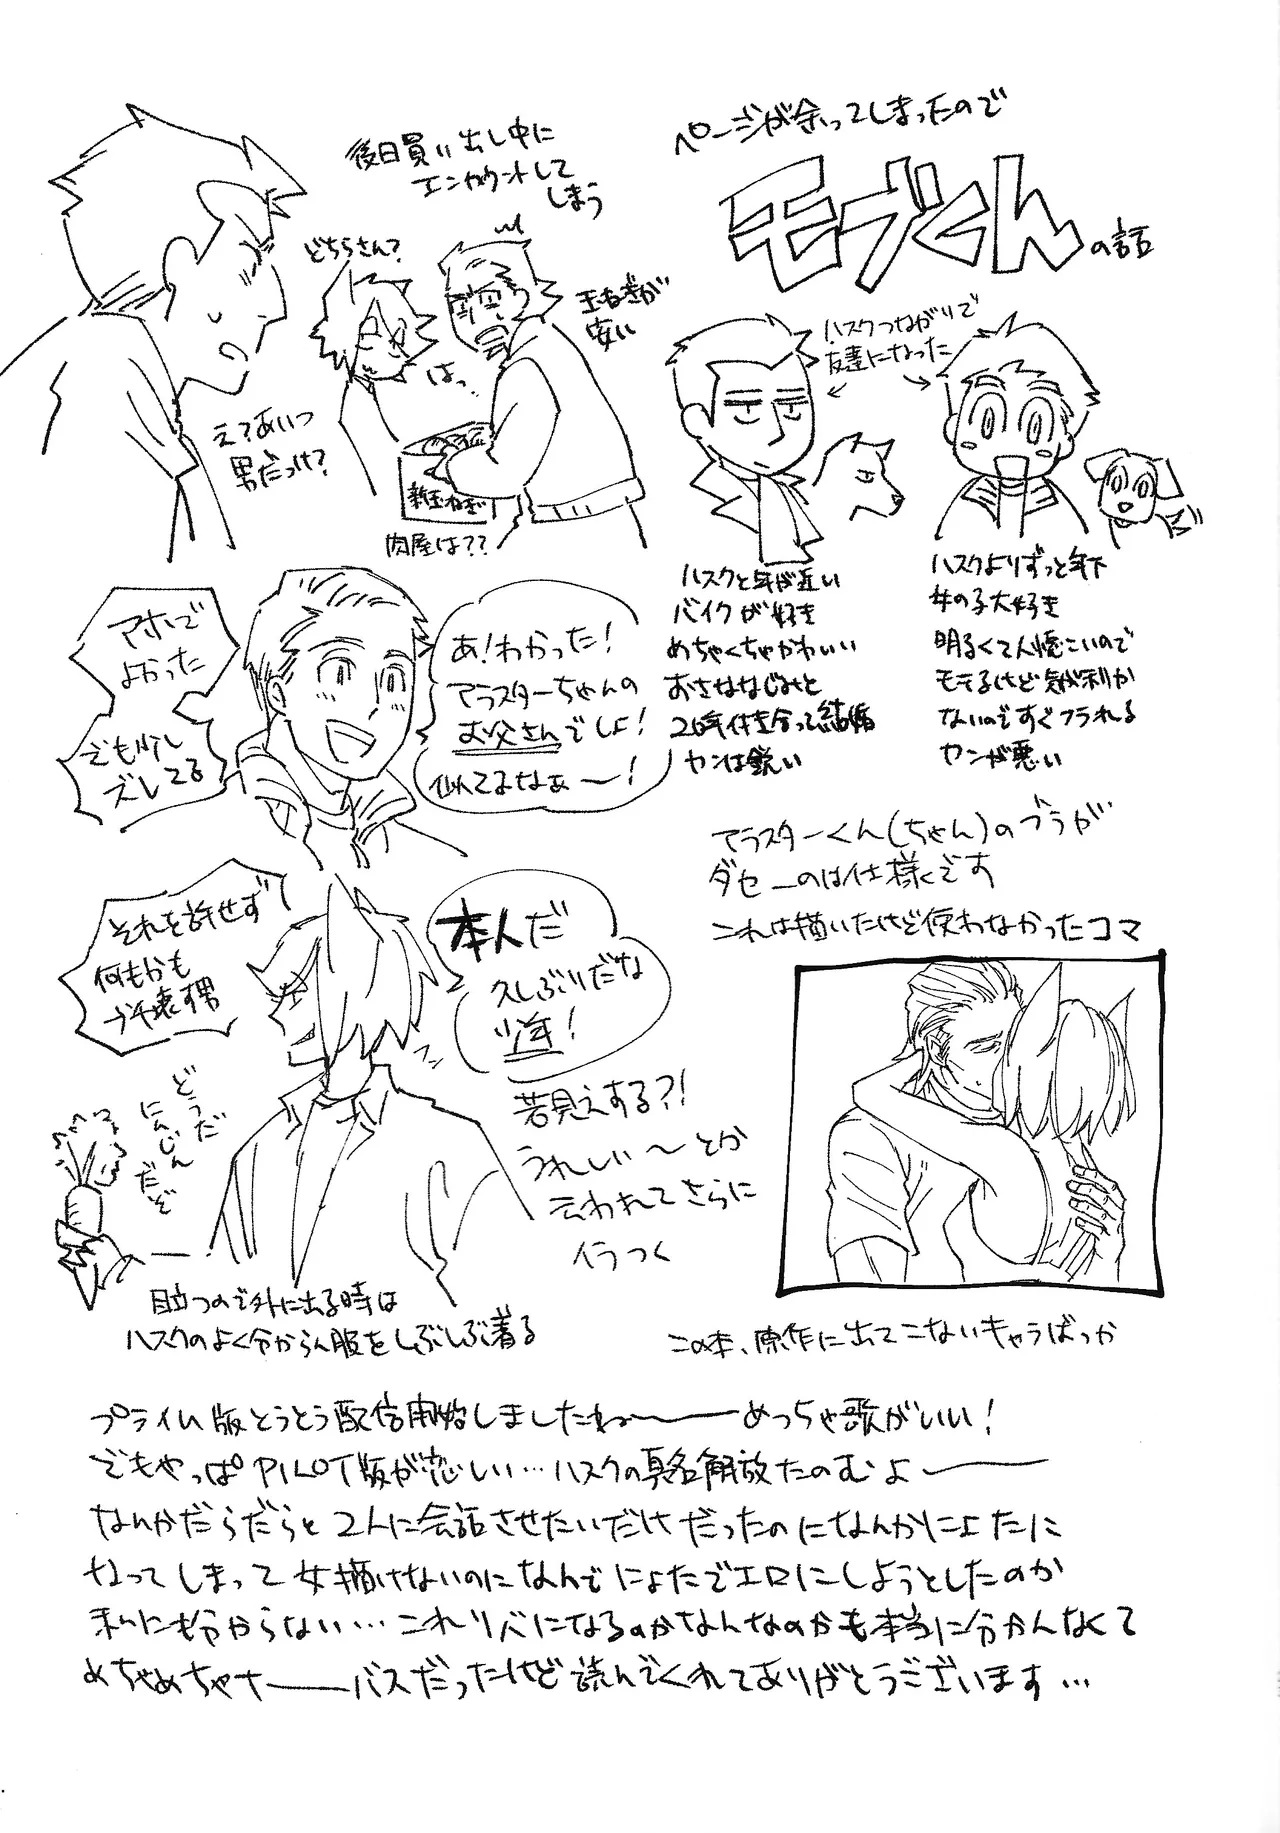 ページが余ってしまったので
モブくんの話
ハスクつながりで
友達になった
ハスクと年が近い
バイクが好き
めちゃくちゃかわいい
おさななじみと
20年付き合って結婚
カンは鋭い
ハスクよりずっと年下
女の子大好き
明るくて人懐こいので
モテるけど気が利か
ないのですぐフラれる
カンが悪い
後日買い出し中に
エンカウントして
しまう
どちらさん?
玉ねぎが
安い
はっ…
え?あいつ
男だっけ?
新玉ねぎ
肉屋は??
あ!わかった!
アラスターちゃんの
お父さんでしょ!
似てるなぁ〜!
アホで
よかった
でも少し
ズレてる
本人だ
久しぶりだな
少年!
それを許せず
何もかも
ブチ壊す男
フン
若見えする?!
うれしい〜とか
云われてさらに
イラつく
どうだ
にんじん
だぞ
目立つので外に出る時は
ハスクのよく分からん服をしぶしぶ着る
アラスターくん(ちゃん)のブラが
ダセーのは仕様です
これは描いたけど使わなかったコマ
この本、原作に出てこないキャラばっか
プライム版とうとう配信開始しましたね〜――めっちゃ歌がいい!
でもやっぱPILOT版が恋しい…ハスクの真名解放たのむよ〜――
なんかだらだらと2人に会話させたいだけだったのになんかにょたに
なってしまって女描けないのになんでにょたでエロにしようとしたのか
私にも分からない…これリバになるのかなんなのかも本当に分かんなくて
めちゃめちゃナ――バスだったけど読んでくれてありがとうございます…